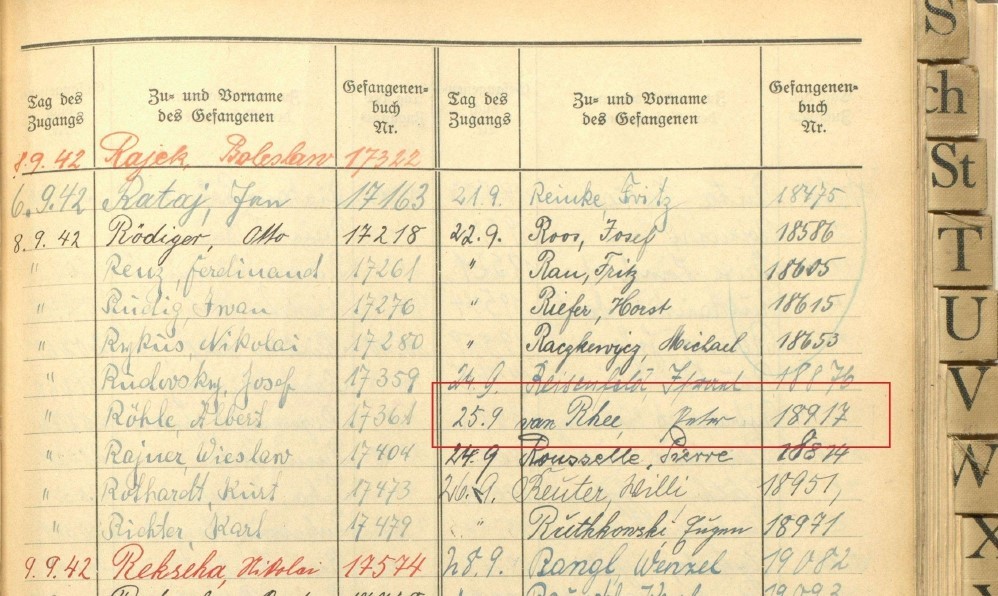 Tag des Zugangs
Zu- und Vorname des Gefangenen
Gefangenenbuch Nr.
Tag des Zugangs
Zu- und Vorname des Gefangenen
Gefangenenbuch Nr.
8.9.42 Rajek, Boleslaw 17322
6.9.42 Rataj, Jan 17163
8.9.42 Rödiger, Otto 17218
" Renz, Ferdinand 17261
" Rudig, Iwan 17276
" Rykus, Nikolai 17280
" Rudovsky, Josef 17359
" Röhle, Albert 17361
" Rajner, Wieslaw 17404
" Rothardt, Kurt 17473
" Richter, Karl 17479
9.9.42 Rekscha, Nikolai 17574
21.9. Reinke, Fritz 18475
22.9. Roos, Josef 18586
" Rau, Fritz 18605
" Riefer, Horst 18615
" Raczkewycz, Michael 18653
24.9. 18876
25.9 van Rhee, Peter 18917
24.9 Rousselle, Pierre 18814
26.9. Reuter, Willi 18951
" Ruthkowski, Eugen 18971
28.9. Rangl, Wenzel 19082
19093
S
Sch
St
T
U
V
W
X